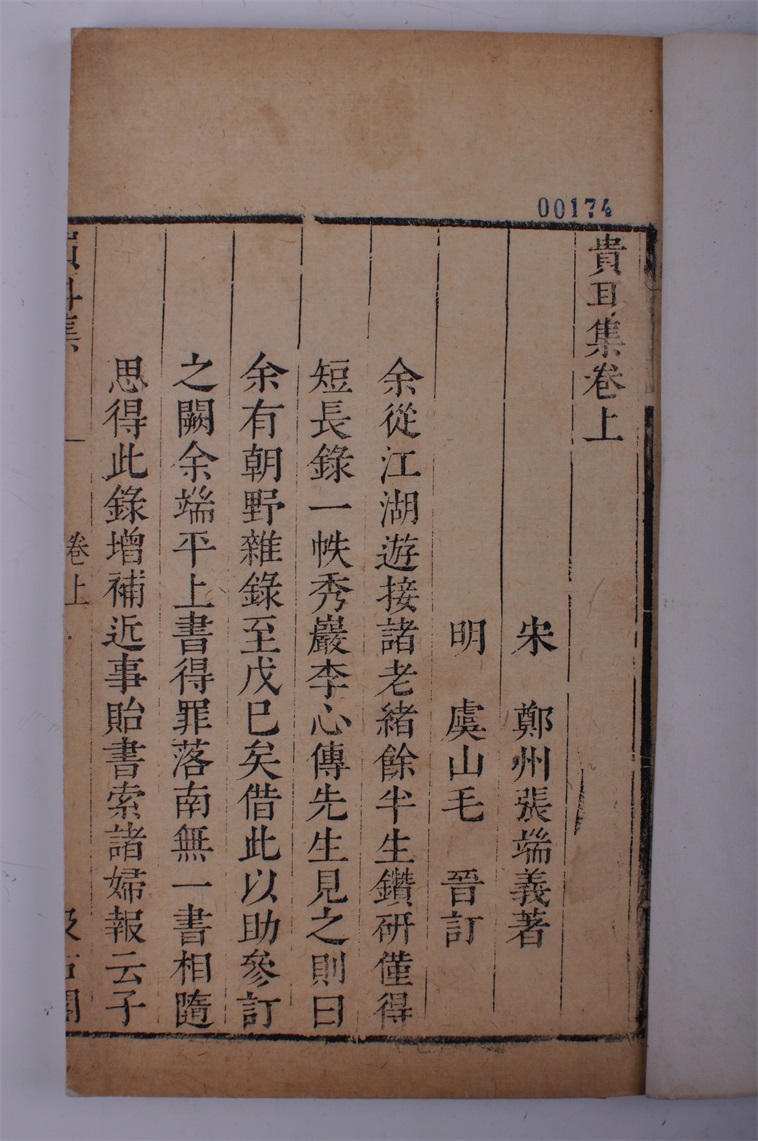 00174
貴耳集卷上
宋　鄭州張端義著
明　虞山毛　晉訂
余從江湖遊接諸老緒餘半生鑽研僅得
短長錄一帙秀巖李心傳先生見之則曰
余有朝野雜錄至戊巳矣借此以助參訂
之闕余端平上書得罪落南無一書相隨
思得此錄增補近事貽書索諸婦報云子
卷上